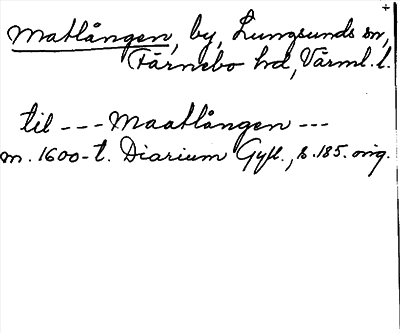 +
Matlången, by, Lungsunds sn,
Färnebo hd, Värml. l.
til --- Maatlången ---
m. 1600-t. Diarium Gyll., s. 185. orig.